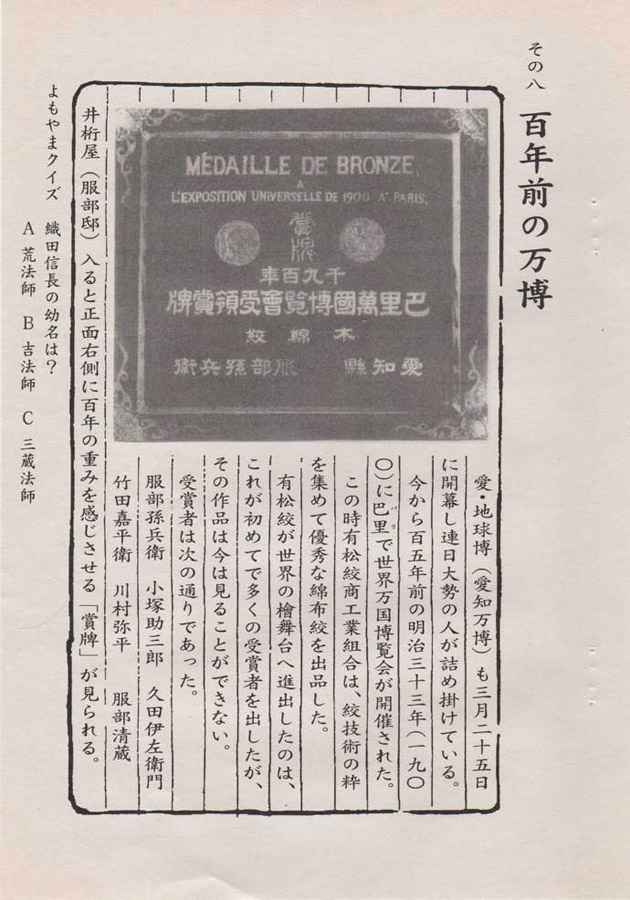 その八 百年前の万博
MÉDAILLE DE BRONZE
A
L'EXPOSITION UNIVERSELLE DE 1900 A PARIS,
賞牌
千九百年
巴里萬國博覧會受領賞牌
木綿絞
愛知縣 服部孫兵衛
愛・地球博(愛知万博)も三月二十五日
に開幕し連日大勢の人が詰め掛けている。
今から百五年前の明治三十三年(一九〇
〇)に巴里で世界万国博覧会が開催された。
パリ
この時有松絞商工業組合は、絞技術の粋
を集めて優秀な綿布絞を出品した。
有松絞が世界の檜舞台へ進出したのは、
これが初めてで多くの受賞者を出したが、
その作品は今は見ることができない。
受賞者は次の通りであった。
服部孫兵衛 小塚助三郎 久田伊左衛門
竹田嘉平衛 川村弥平 服部清蔵
井桁屋(服部邸)入ると正面右側に百年の重みを感じさせる「賞牌」が見られる。
よもやまクイズ 織田信長の幼名は?
A 荒法師 B 吉法師 C 三蔵法師